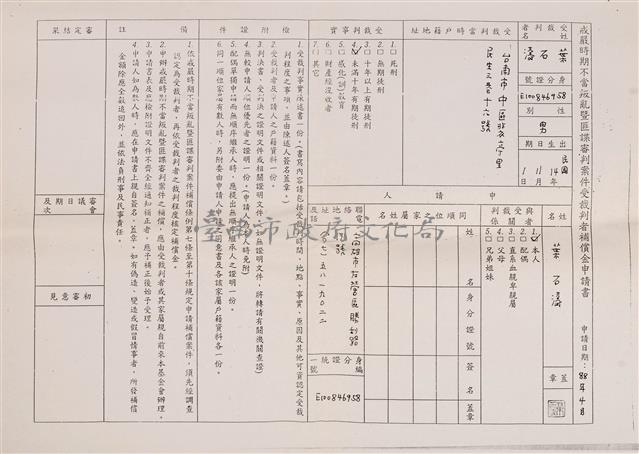 戒嚴時期不當叛亂暨匪諜審判案件受裁判者補償金申請書
申請日期：88年4月
受裁判者姓名
葉石濤
身分證號
E100846958
性別
男
出生日期
民國14年11月1日
受裁判當時戶籍地址
台南市中區
受裁判事實
1.□死刑
2.□無期徒刑
3.□十年以上有期徒刑
4.☑未滿十年有期徒刑
5.□感化(訓)教育
6.□財產經沒收者
7.□其它
申請人
姓名
葉石濤
蓋章
與受裁判者關係
1.☑本人
2.□配偶
3.□直系血親卑親屬
4.□父母
5.□兄弟姐妹
同順位之家屬姓名
姓名
身分證號
簽名蓋章
聯絡地址及電話
高雄市左營區勝利路
號
(07)五八一九0二二
身分證統一編號
E100846958
檢附證件
1.受裁判事實陳述書一份。(書寫內容請包括受裁判時間、地點、事實、原因及其他可資認定受裁
判程度之事項，並由陳述人簽名蓋章。)
2.受裁判者及申請人之戶籍資料一份。
3.判決書、受判決之證明文件或相關證明文件。(如無證明文件，將轉請有關機關查證)
4.無較申請人順位優先者之證明一份。(申請人為本人時免附)
5.配偶單獨申請而無順序繼承人時，應提出無順序繼承人之證明一份。
6.同一順位家屬有數人時，另附委由申請人申請之同意書及各該家屬戶籍資料各一份。
備註
1.依戒嚴時期不當叛亂暨匪諜審判案件補償條例第七條至第十條規定申請補償案件，須先經調查
認定為受裁判者，再依受裁判者之裁判程度核定補償金。
2.申辦戒嚴時期不當叛亂暨匪諜審判案件之補償，應由受裁判者或其家屬親自前來本基金會辦理。
3.申請書表及應檢附證明文件不齊全經通知補正者，應予補正後始予受理。
4.申請人如為數人時，應在申請書上親自簽名、蓋章。如有偽造、變造或假冒情事者，所發補償
金額除應全數追回外，並依法負刑事及民事責任。
審定結果
審議會日期及次
初審意見
臺南市政府文化局